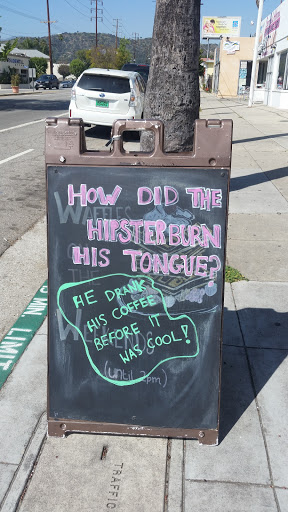 HOW DID THE
HIPSTER BURN
HIS TONGUE?
HE DRANK
HIS COFFEE
BEFORE IT
WAS COOL!
WAFFLES
THE
(until 2pm)
5 MIN LIMIT
TRAFFIC